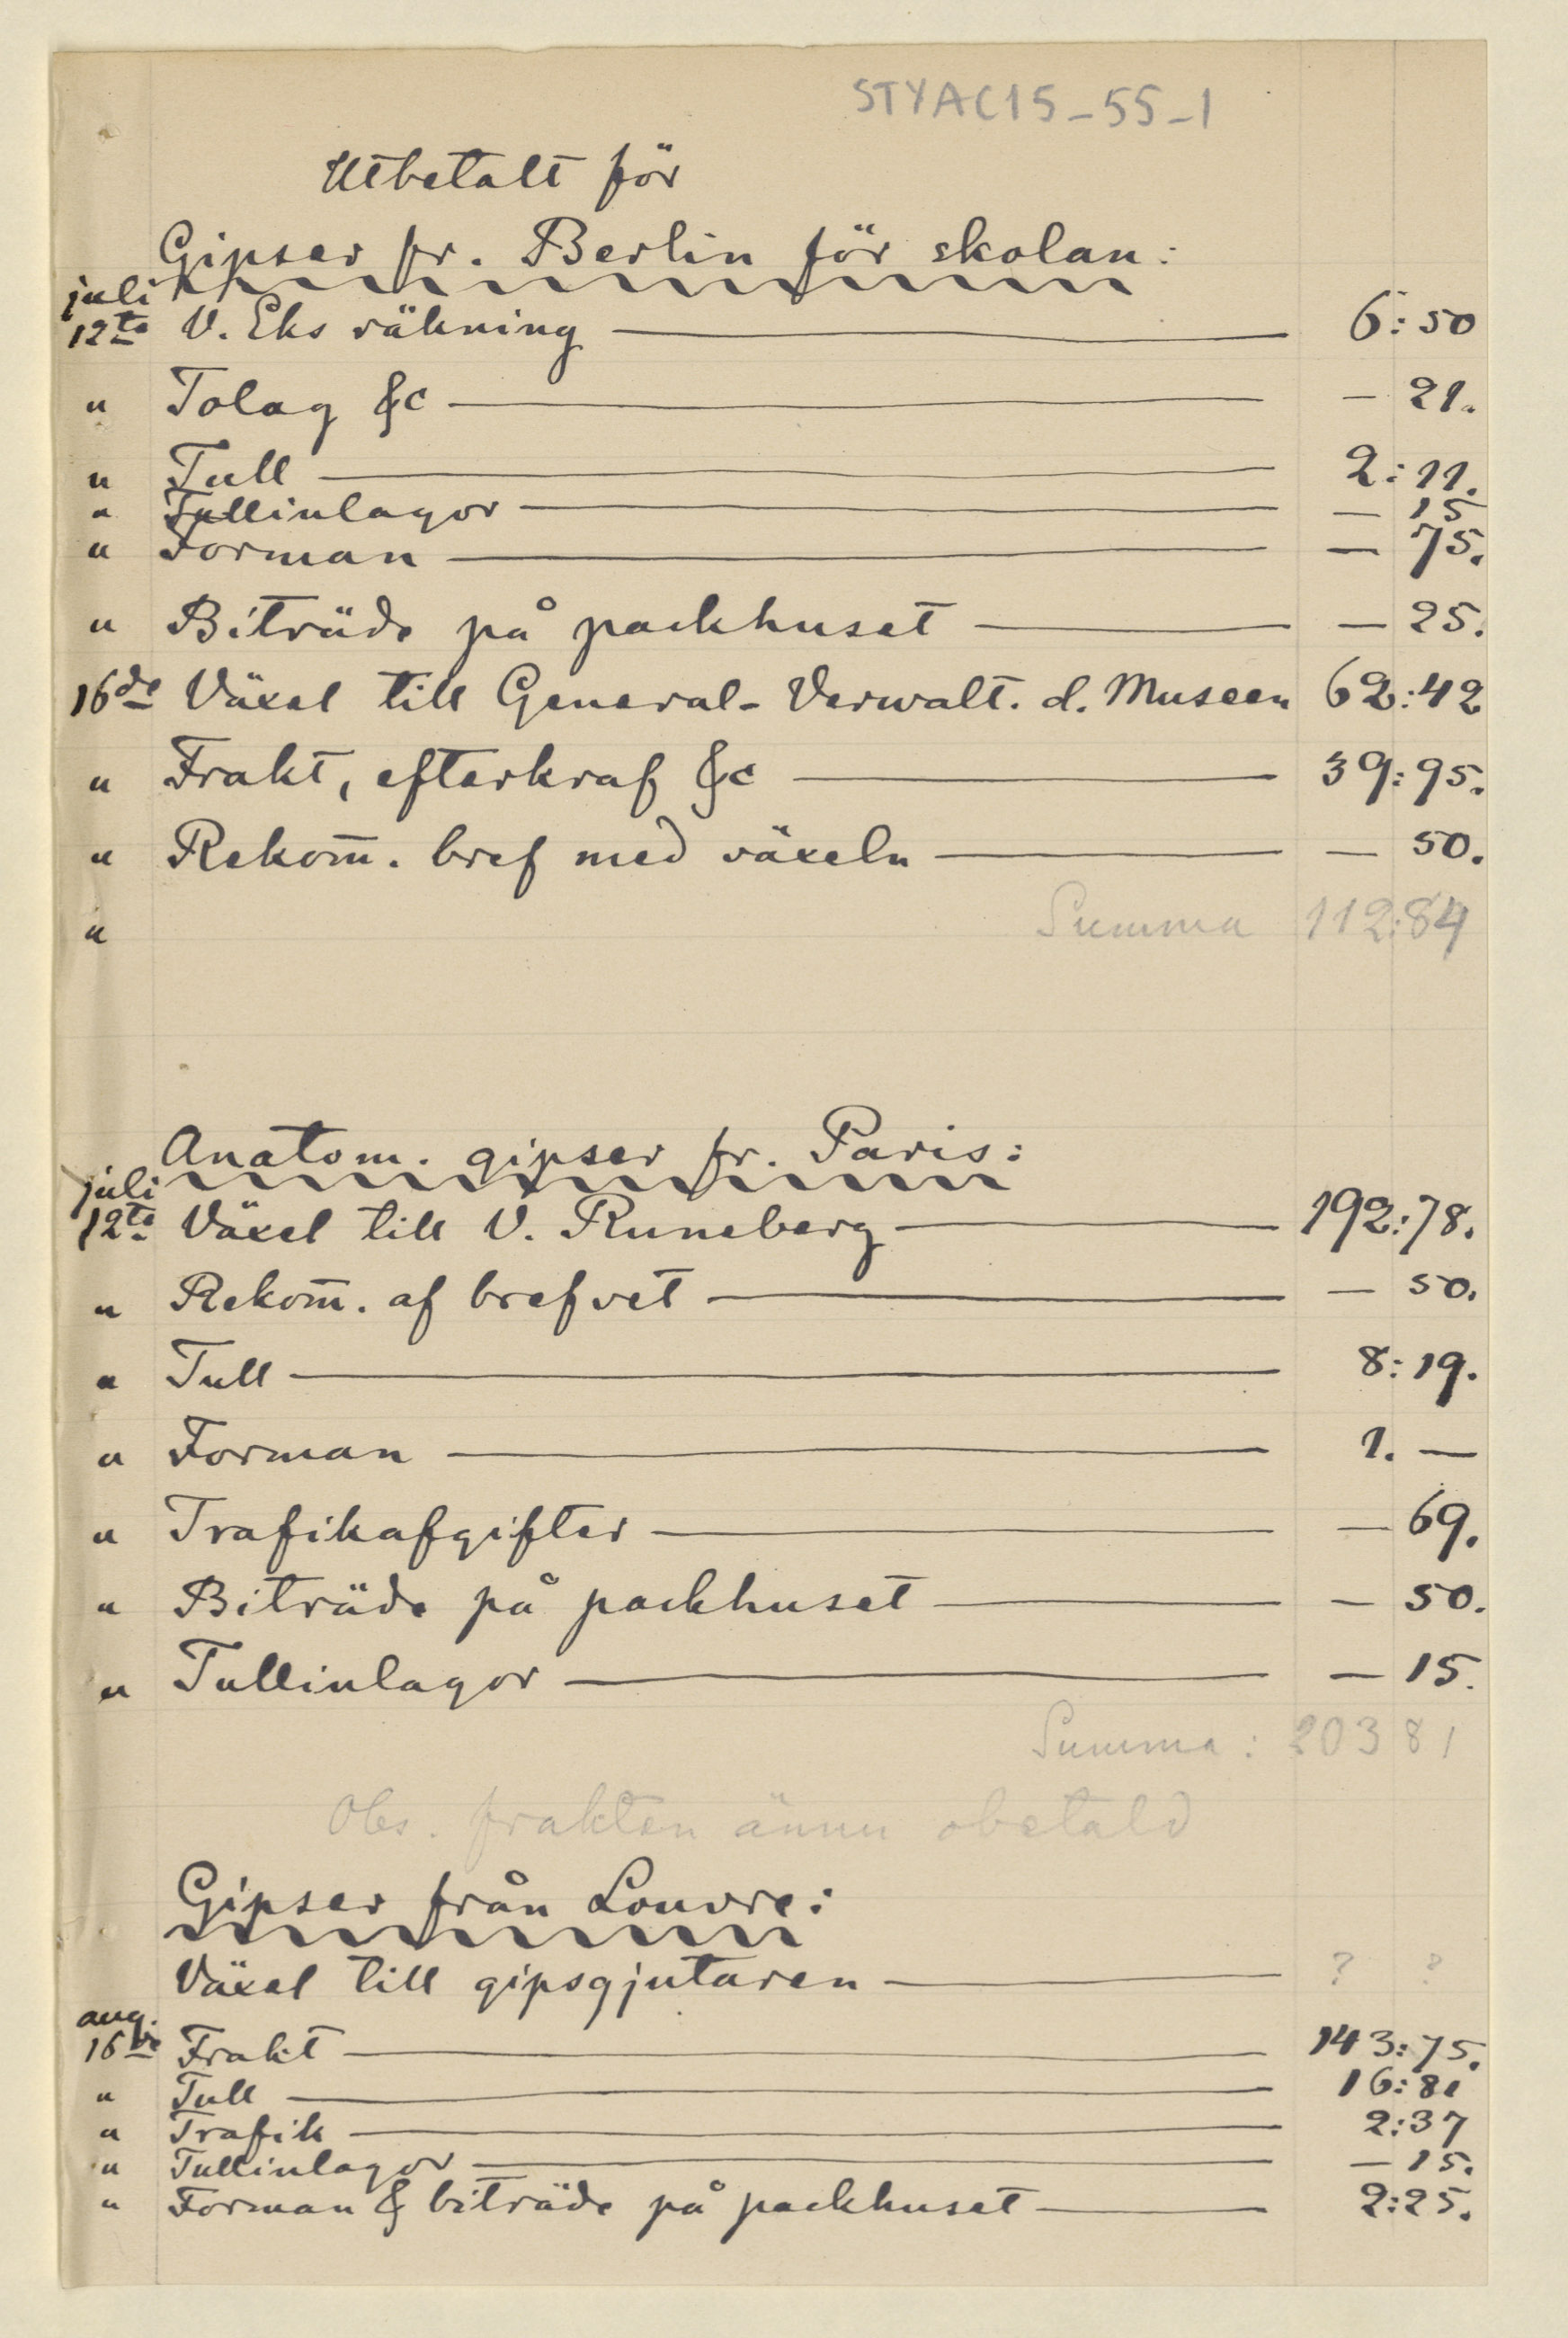 STYAC15-55-1
Utbetalt för
Gipser fr. Berlin för skolan:
juli
12te V. Eks räkning — 6:50
" Tolag &c — — 21.
" Tull — 2:11.
" Tullinlagor — — 15
" Forman — — 75.
" Biträde på packhuset — — 25.
16de Växel till General-Verwalt. d. Museen 62:42
" Frakt, efterkraf &c — 39:95.
" Rekom̄. bref med växeln — — 50.
" Summa 112:84
Anatom. gipser fr. Paris:
juli
12te Växel till V. Runeberg — 192:78.
" Rekom̄. af brefvet — — 50.
" Tull — 8:19.
" Forman — 1. —
" Trafikafgifter — — 69.
" Biträde på packhuset — — 50.
" Tullinlagor — — 15.
Summa: 203 81
Obs. frakten ännu obetald
Gipser från Louvre:
Växel till gipsgjutaren — ? ?
aug.
16de Frakt — 143:75.
" Tull — 16:81
" Trafik — 2:37
" Tullinlagor — — 15.
" Forman & biträde på packhuset — 2:25.